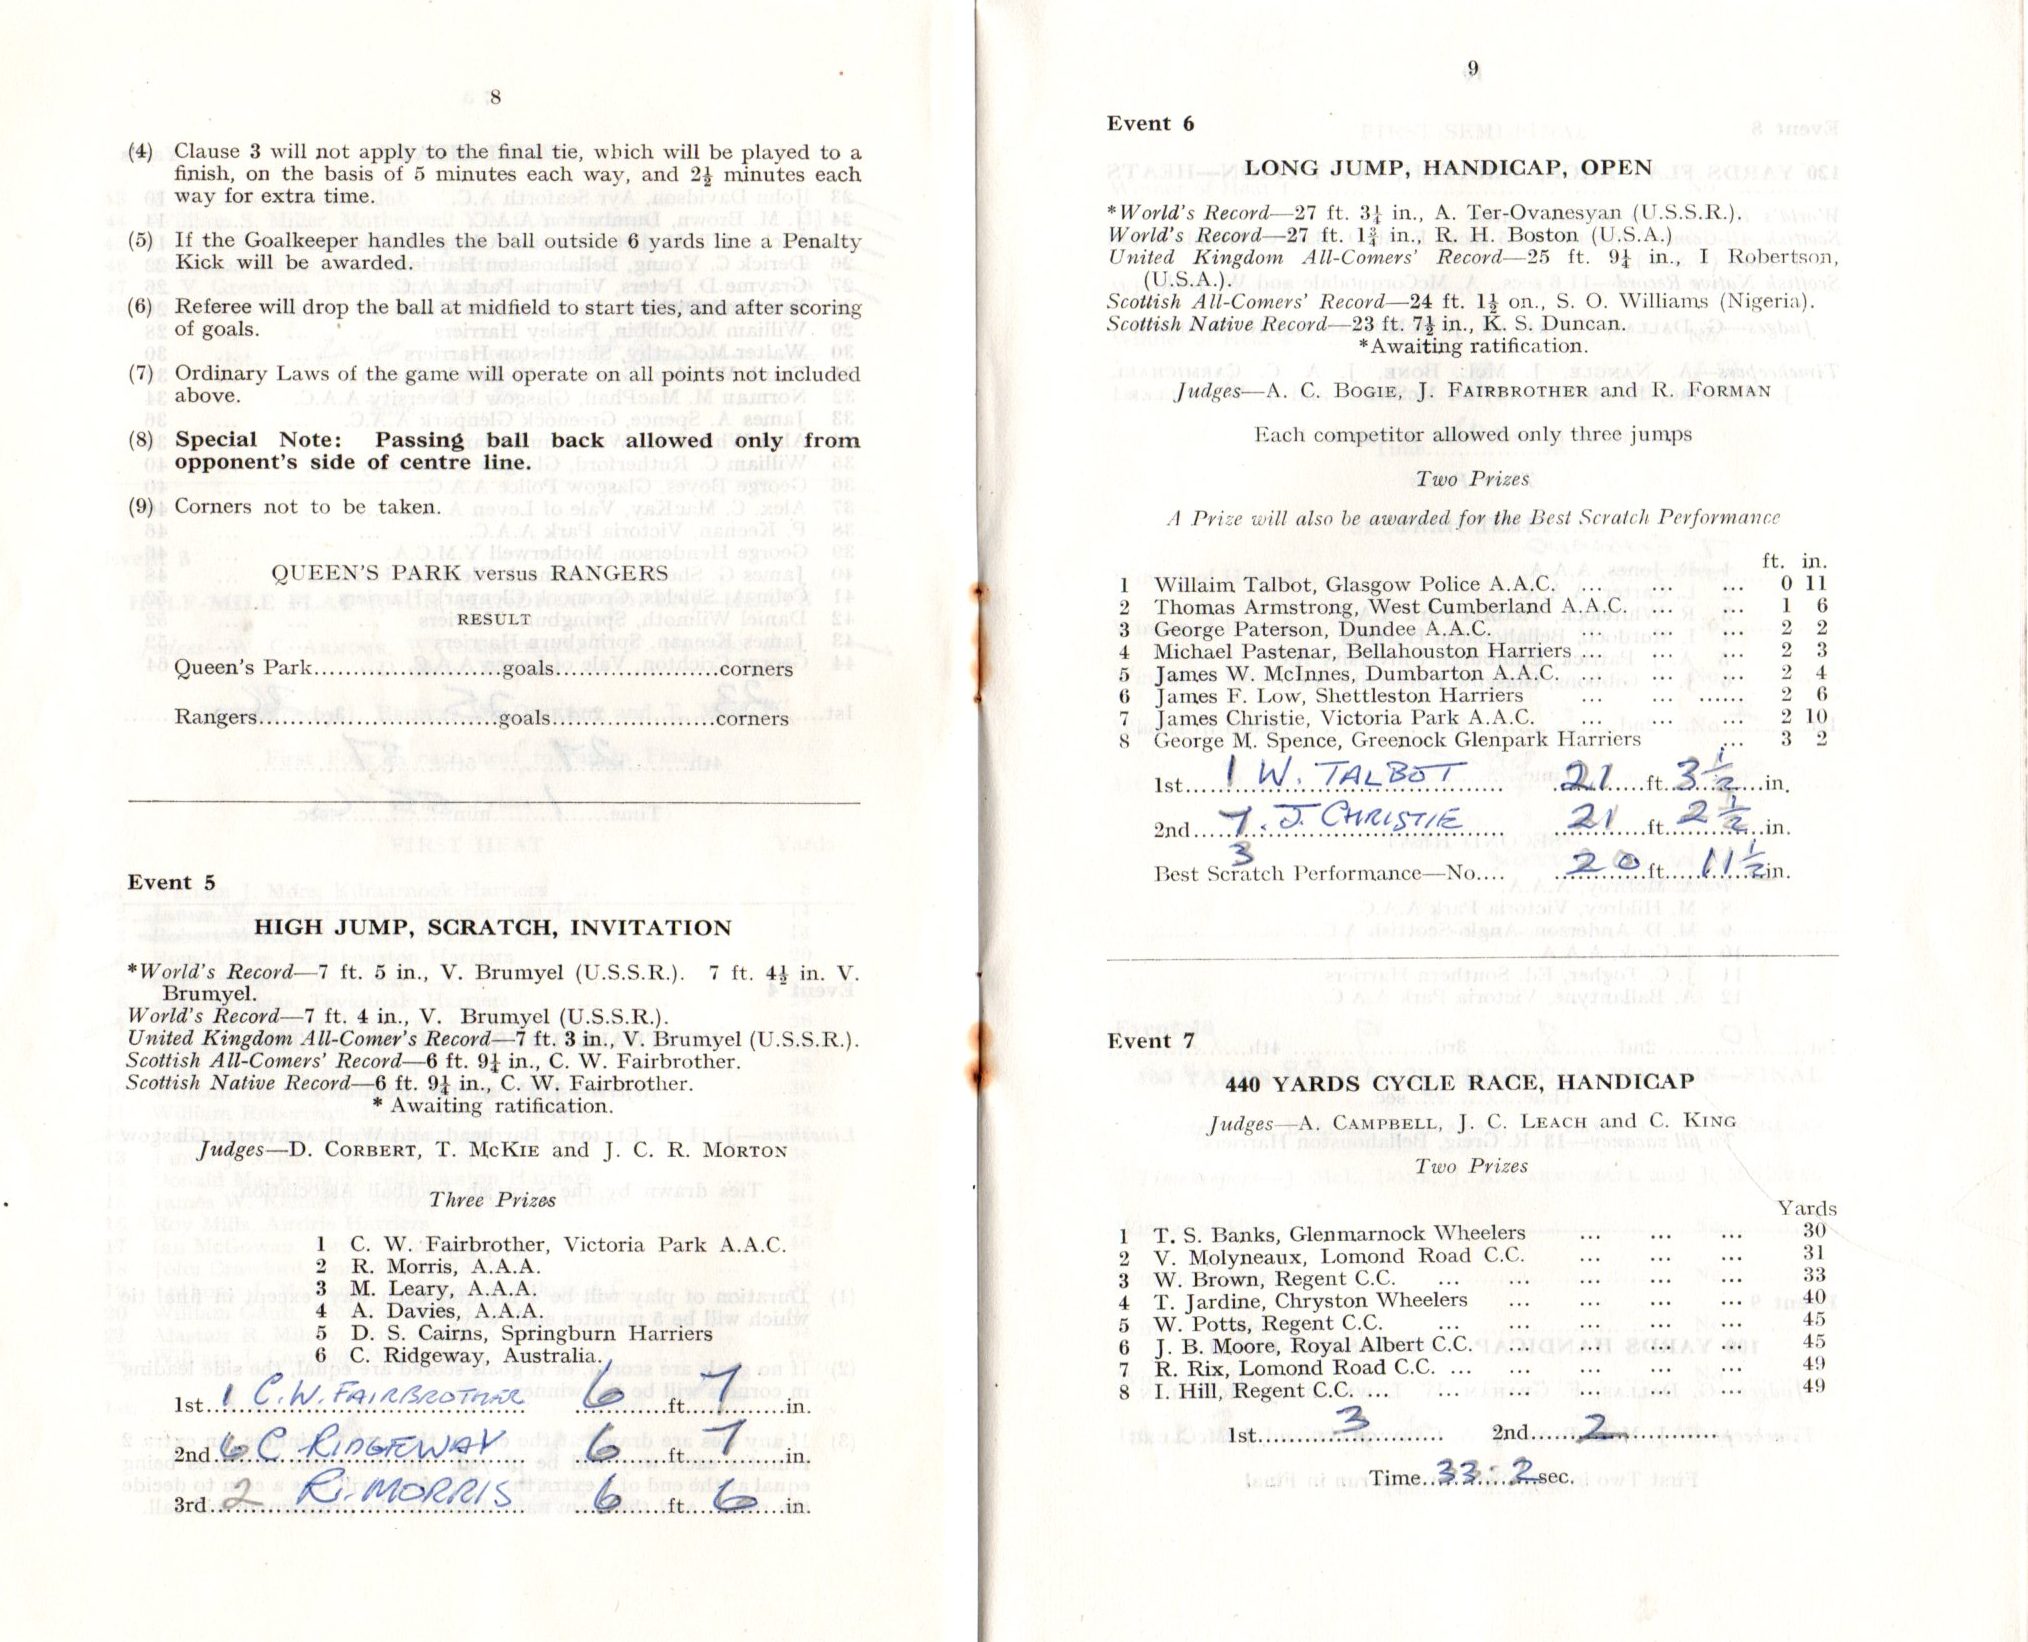 8
(4) Clause 3 will not apply to the final tie, which will be played to a
finish, on the basis of 5 minutes each way, and 2½ minutes each
way for extra time.
(5) If the Goalkeeper handles the ball outside 6 yards line a Penalty
Kick will be awarded.
(6) Referee will drop the ball at midfield to start ties, and after scoring
of goals.
(7) Ordinary Laws of the game will operate on all points not included
above.
(8) Special Note: Passing ball back allowed only from
opponent's side of centre line.
(9) Corners not to be taken.
QUEEN'S PARK versus RANGERS
RESULT
Queen's Park........................goals......................corners
Rangers...............................goals.....................corners
Event 5
HIGH JUMP, SCRATCH, INVITATION
*World's Record—7 ft. 5 in., V. Brumyel (U.S.S.R.). 7 ft. 4½ in. V.
Brumyel.
World's Record—7 ft. 4 in., V. Brumyel (U.S.S.R.).
United Kingdom All-Comer's Record—7 ft. 3 in., V. Brumyel (U.S.S.R.).
Scottish All-Comers' Record—6 ft. 9¼ in., C. W. Fairbrother.
Scottish Native Record—6 ft. 9¼ in., C. W. Fairbrother.
* Awaiting ratification.
Judges—D. CORBERT, T. MCKIE and J. C. R. MORTON
Three Prizes
1 C. W. Fairbrother, Victoria Park A.A.C.
2 R. Morris, A.A.A.
3 M. Leary, A.A.A.
4 A. Davies, A.A.A.
5 D. S. Cairns, Springburn Harriers
6 C. Ridgeway, Australia.
1st 1 C.W. FAIRBROTHER 6 ft. 7 in.
2nd 6 C RIDGEWAY 6 ft. 7 in.
3rd 2 R. MORRIS 6 ft. 6 in.
9
Event 6
LONG JUMP, HANDICAP, OPEN
*World's Record—27 ft. 3¼ in., A. Ter-Ovanesyan (U.S.S.R.).
World's Record—27 ft. 1¾ in., R. H. Boston (U.S.A.)
United Kingdom All-Comers' Record—25 ft. 9¼ in., I Robertson,
(U.S.A.).
Scottish All-Comers' Record—24 ft. 1½ on., S. O. Williams (Nigeria).
Scottish Native Record—23 ft. 7½ in., K. S. Duncan.
*Awaiting ratification.
Judges—A. C. BOGIE, J. FAIRBROTHER and R. FORMAN
Each competitor allowed only three jumps
Two Prizes
A Prize will also be awarded for the Best Scratch Performance
ft. in.
1 Willaim Talbot, Glasgow Police A.A.C. ... ... ... 0 11
2 Thomas Armstrong, West Cumberland A.A.C. ... ... 1 6
3 George Paterson, Dundee A.A.C. ... ... ... 2 2
4 Michael Pastenar, Bellahouston Harriers ... ... ... 2 3
5 James W. McInnes, Dumbarton A.A.C. ... ... ... 2 4
6 James F. Low, Shettleston Harriers ... ... ...... 2 6
7 James Christie, Victoria Park A.A.C. ... ... ... 2 10
8 George M. Spence, Greenock Glenpark Harriers ... 3 2
1st 1 W. TALBOT 21 ft. 3½ in.
2nd 7. J. CHRISTIE 21 ft. 2½ in.
Best Scratch Performance—No. 3 20 ft. 11½ in.
Event 7
440 YARDS CYCLE RACE, HANDICAP
Judges—A. CAMPBELL, J. C. LEACH and C. KING
Two Prizes
Yards
1 T. S. Banks, Glenmarnock Wheelers ... ... ... 30
2 V. Molyneaux, Lomond Road C.C. ... ... ... 31
3 W. Brown, Regent C.C. ... ... ... ... ... 33
4 T. Jardine, Chryston Wheelers ... ... ... ... 40
5 W. Potts, Regent C.C. ... ... ... ... ... 45
6 J. B. Moore, Royal Albert C.C. ... ... ... ... 45
7 R. Rix, Lomond Road C.C. ... ... ... ... ... 49
8 I. Hill, Regent C.C. ... ... ... ... ... ... 49
1st 3 2nd 2
Time 33.2 sec.